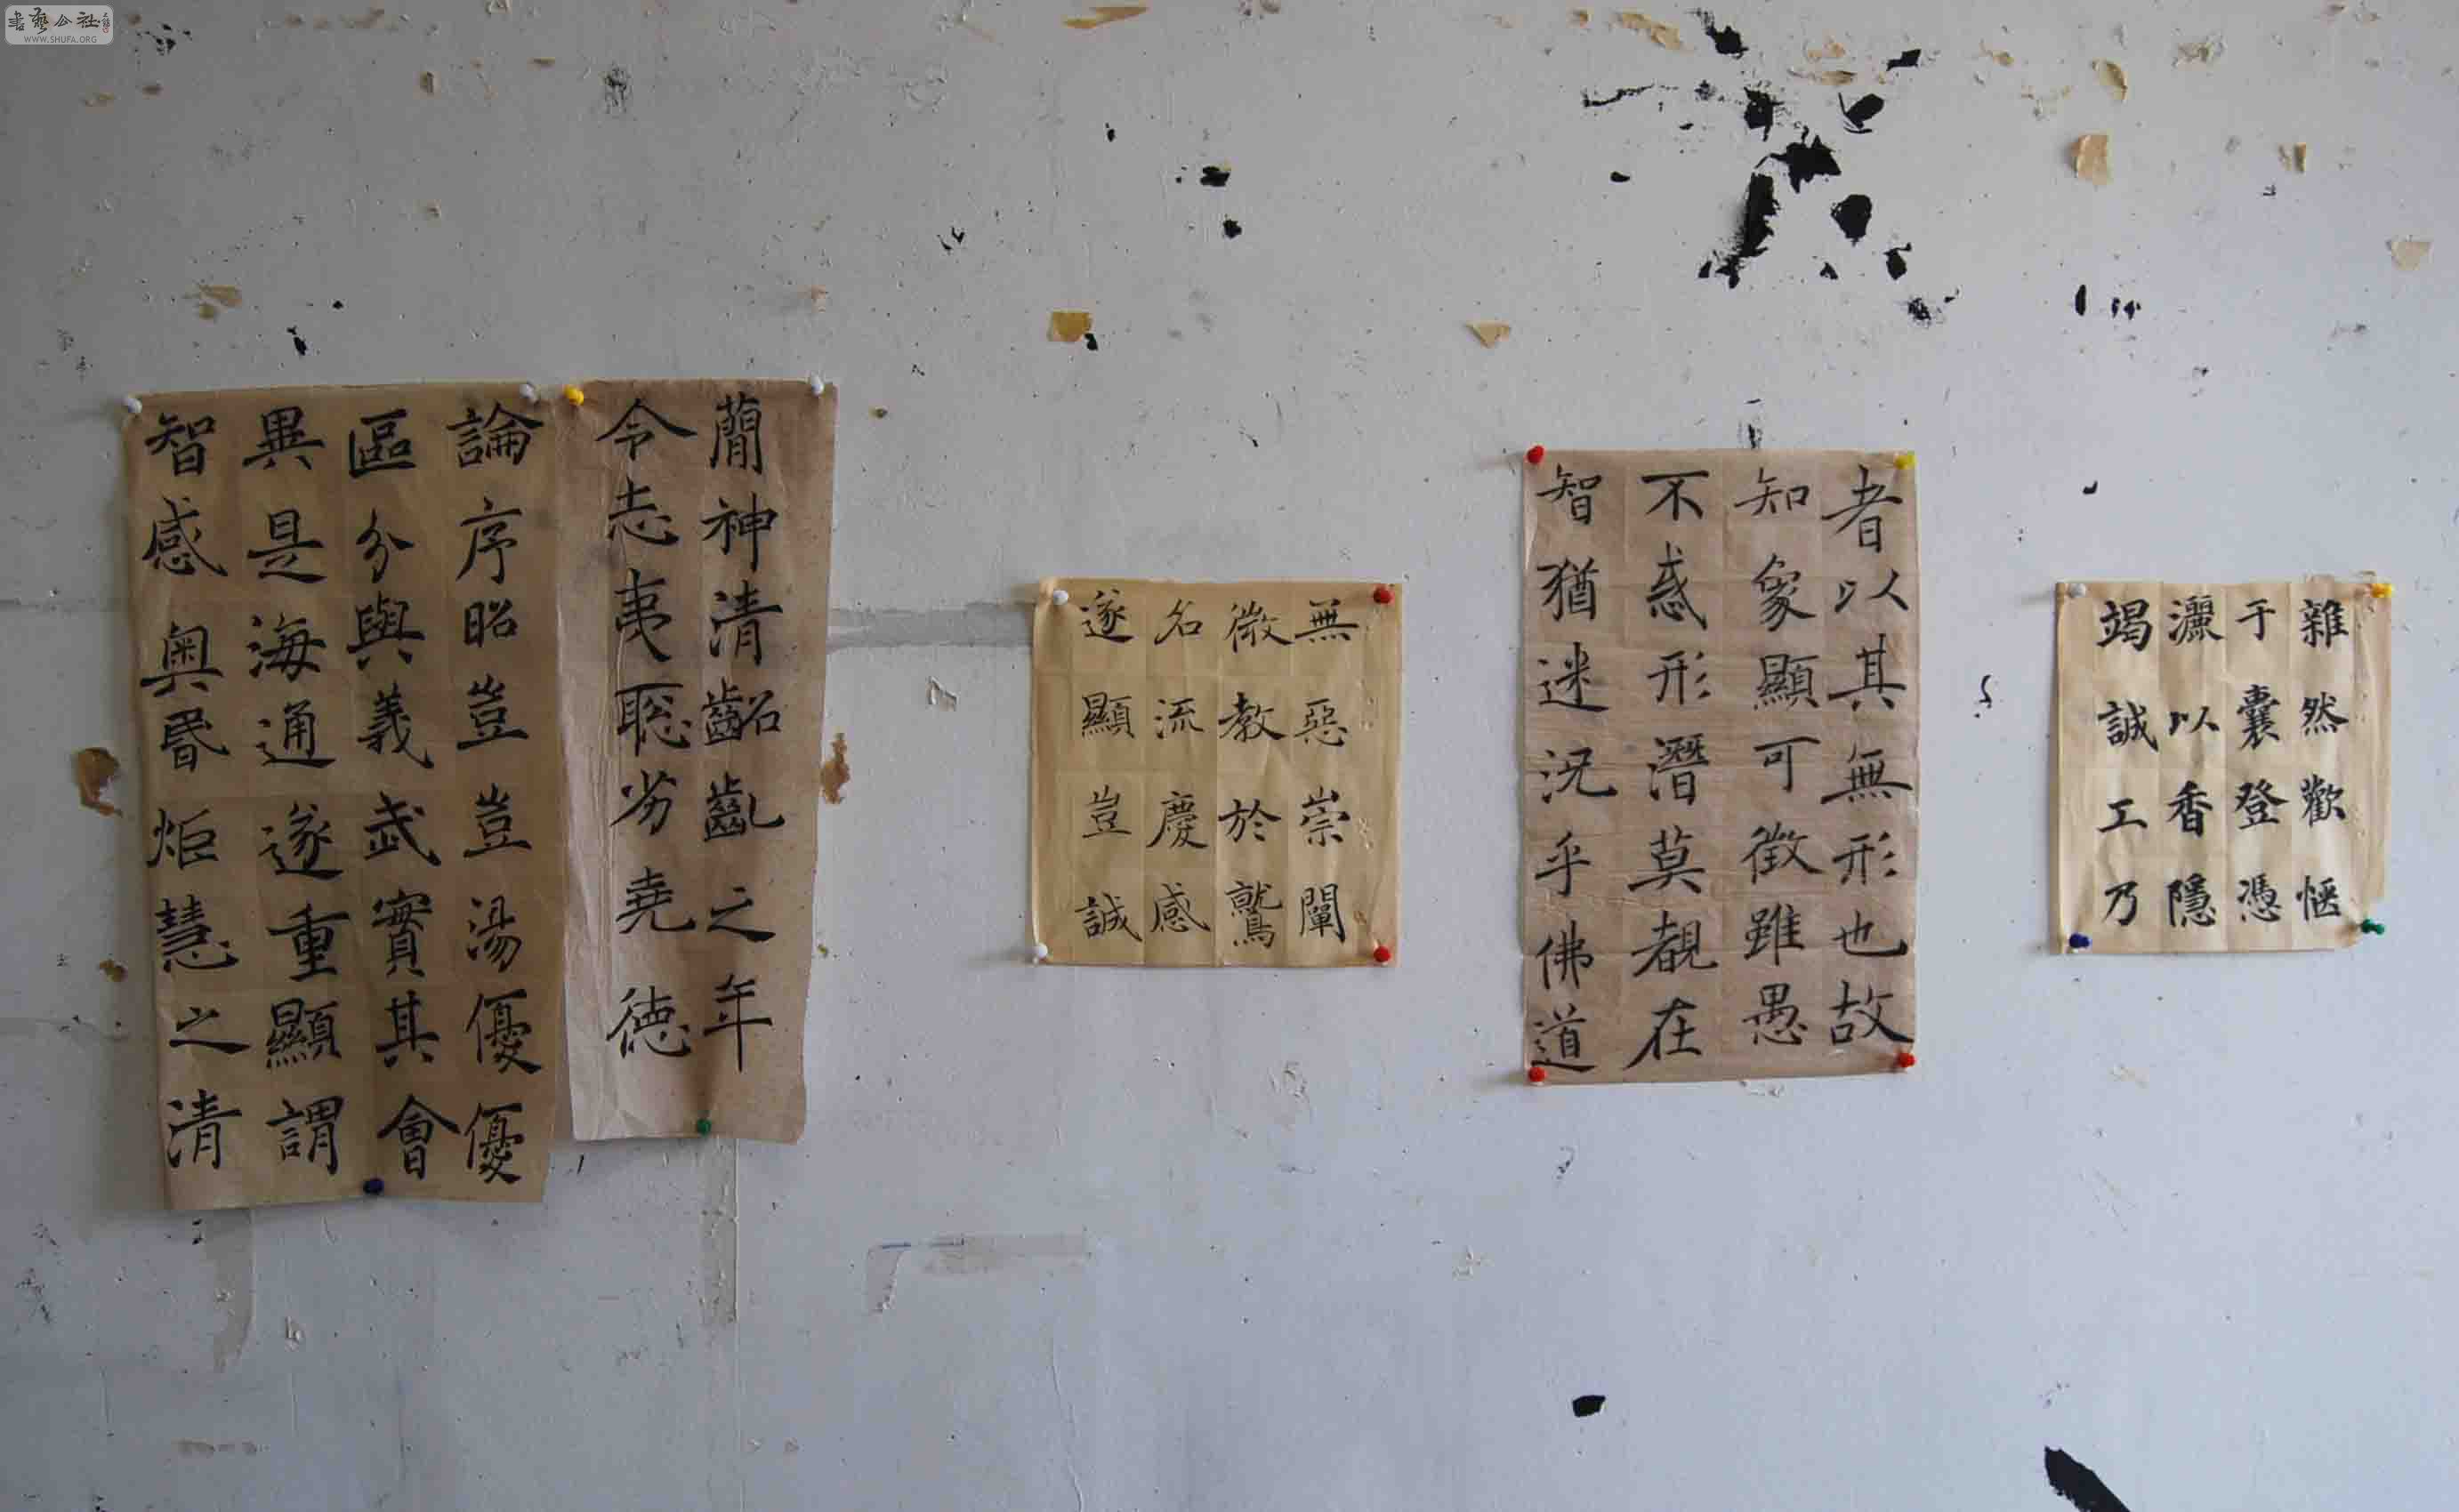 書藝公社
WWW.SHUFA.ORG
雜然歡愜
于囊登憑
灑以香隱
竭誠工乃
者以其無形也故
知象顯可徵雖愚
不惑形潛莫覩在
智猶迷況乎佛道
無惡崇闡
微教於鷲
名流慶感
遂顯豈誠
蕳神清齠齓之年
令志夷聡劣堯德
論序昭豈豈湯優優
區分與義武實其會
異是海通遂重顯謂
智感奧昬炬慧之清